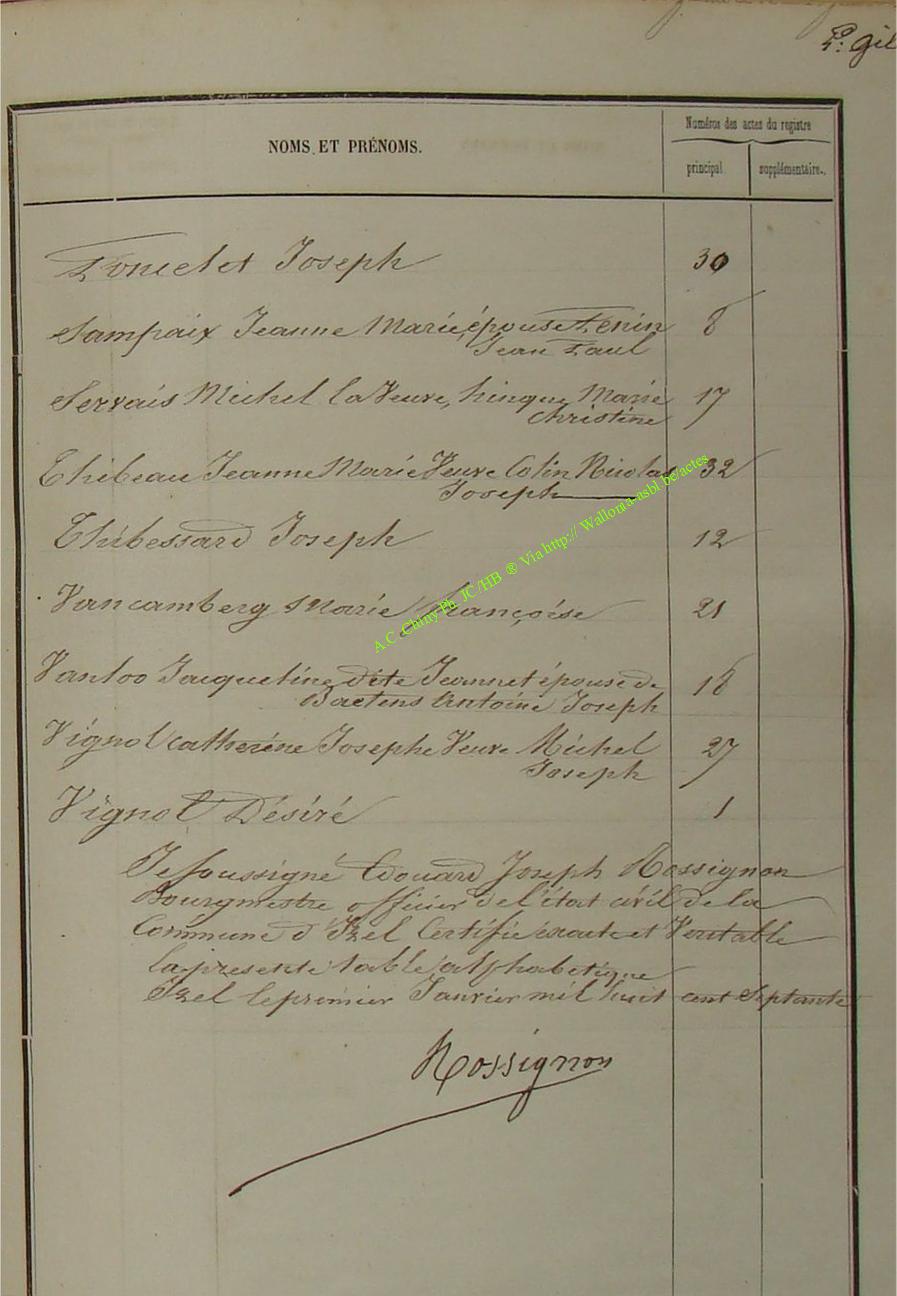 P. Gil
Numéros des actes du registre
NOMS ET PRÉNOMS.
principal. supplémentaire.
Poncelet Joseph 30
Sampaix Jeanne Marie, épouse Penin 8
Jean Paul
Servais Michel la Veuve, hinque Marie 17
Christine
Thibeau Jeanne Marie Veuve Colin Nicolas 32
Joseph
Thibessard Joseph 12
Vancamberg Marie françoise 21
Vanloo Jacqueline dite Jeannet épouse de 18
Baetens Antoine Joseph
Vignol catherine Josephe Veuve Michel 27
Joseph
Vignol Désiré 1
Je soussigné Edouard Joseph Rossignon
Bourgmestre officier de l'état civil de la
Commune d'Izel Certifie exacte et Veritable
la presente table alphabetique
Izel le premier Janvier mil huit cent Septante
Rossignon
A.C. Chiny Ph. JC/HB ® Via http:// Wallonia-asbl.be/actes